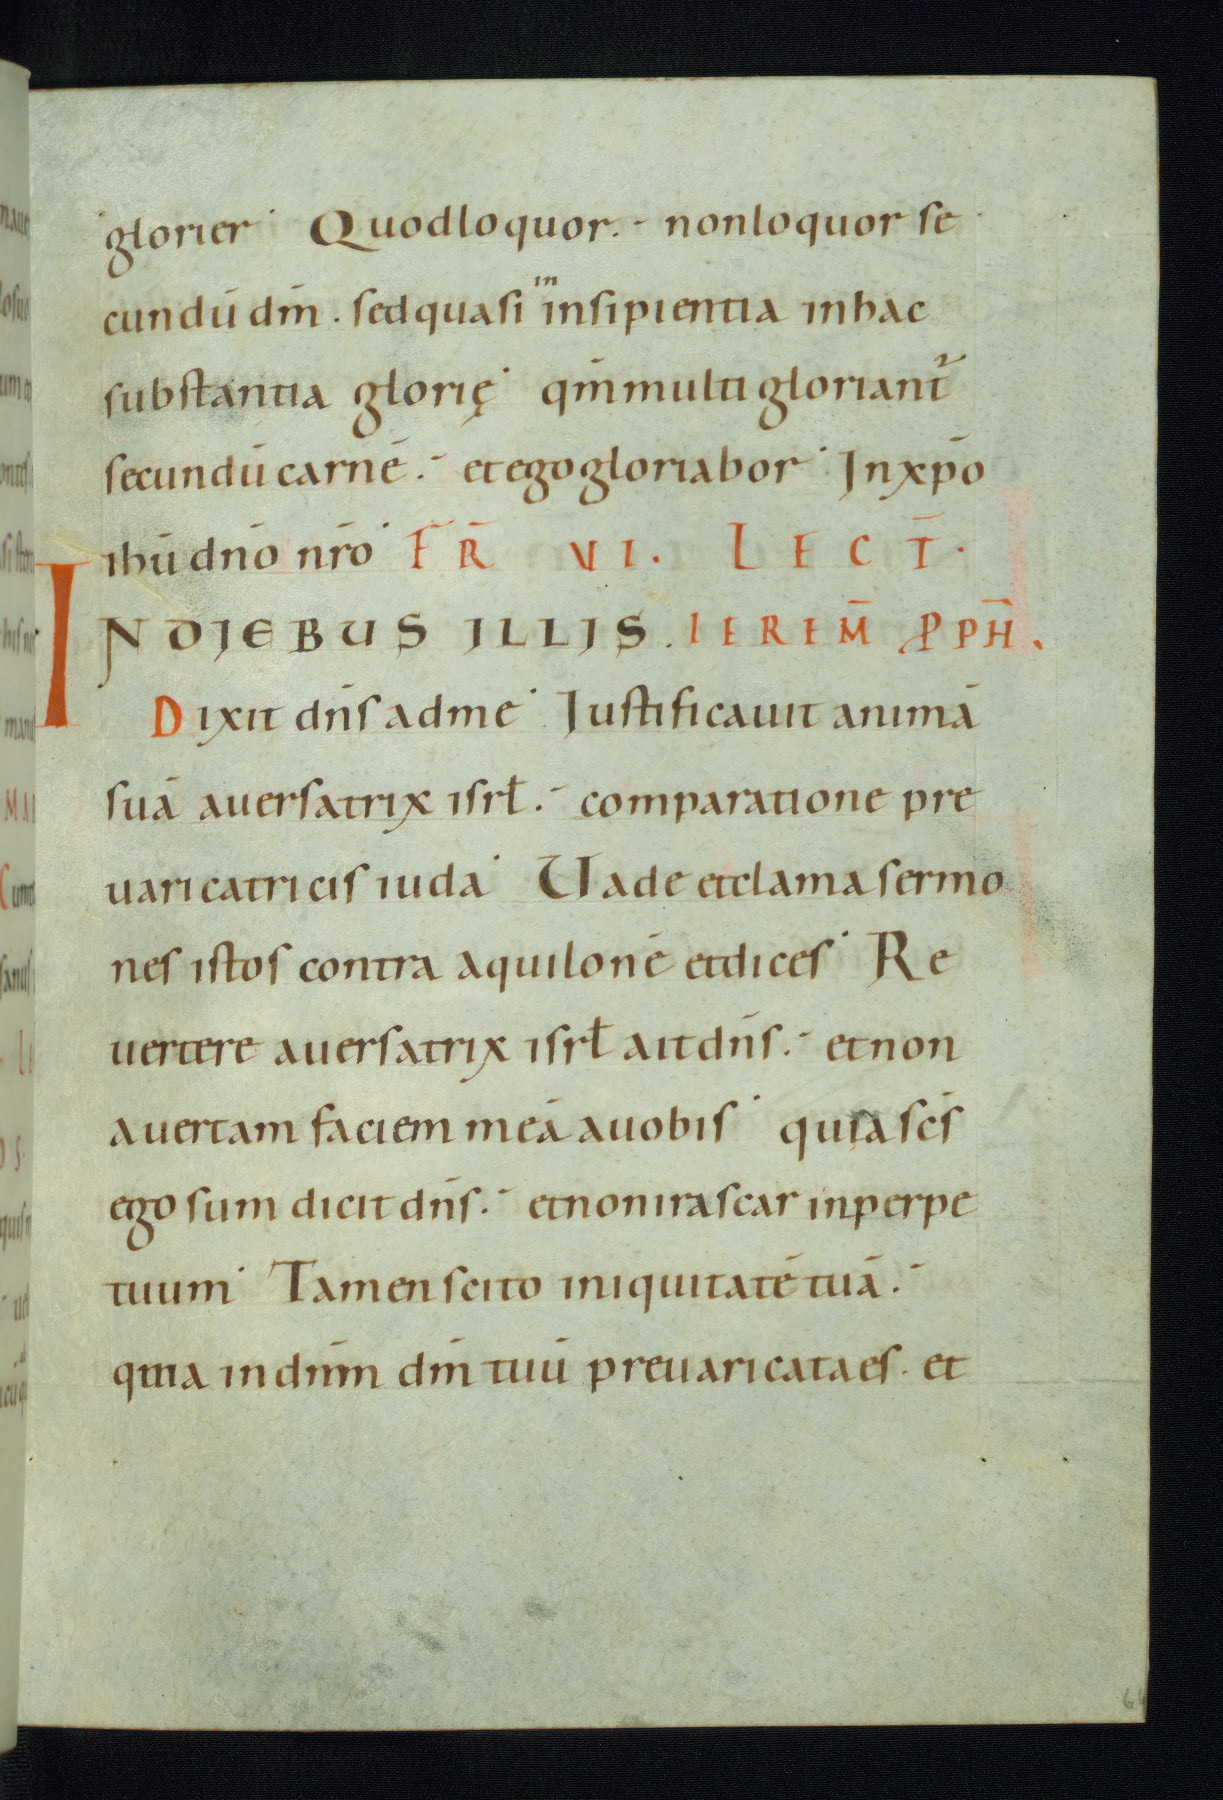 glorier· Quodloquor.- nonloquor se
cundū dm̄. sedquasi in insipientia inhac
substantia glorię· qm̄multi gloriant᷑
secundū carnē.- etegogloriabor· Inxp̄o
ihū dn̄o nr̄o· F̄R̄ VI. LECT̄.
INDIEBUS ILLIS. IEREM̄ PPH̄.
Dixit dn̄s adme· Iustificauit animā
suā auersatrix isrł.- comparatione pre
uaricatricis iuda· Uade etclama sermo
nes istos contra aquilonē etdices· Re
uertere auersatrix isrł aitdn̄s.- etnon
auertam faciem meā auobis· quia sc̄s
ego sum dicit dn̄s.- etnonirascar inperpe
tuum· Tamen scito iniquitatē tuā.-
quia indn̄m dm̄ tuū preuaricataes. et